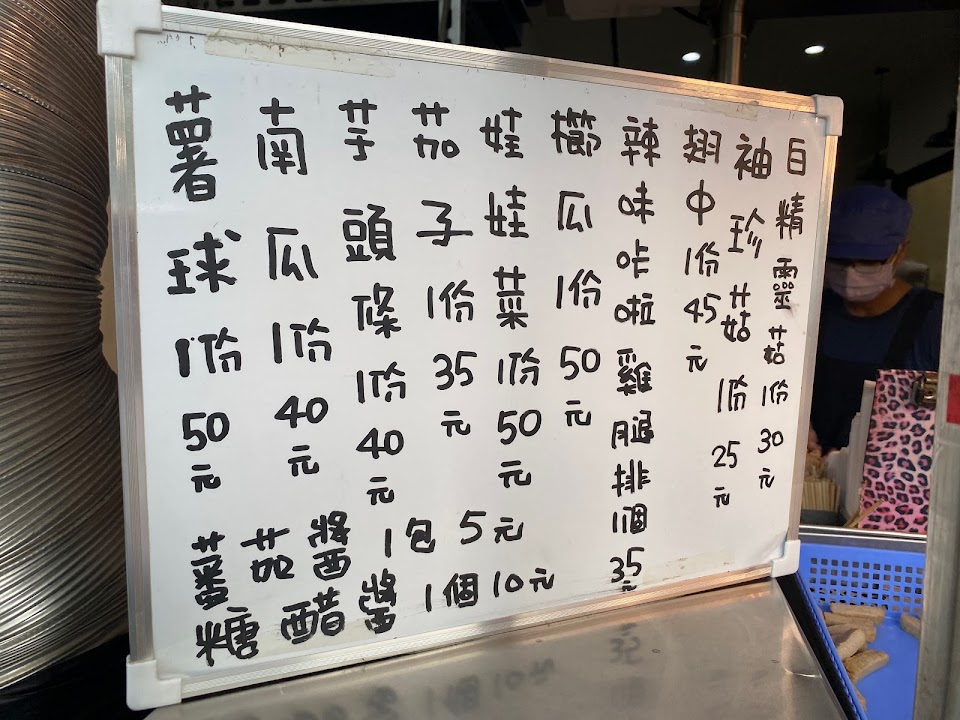 白精靈菇1份30元
袖珍菇1份25元
翅中1份45元
辣味咔啦雞腿排1個35元
櫛瓜1份50元
娃娃菜1份50元
茄子1份35元
芋頭條1份40元
南瓜1份40元
薯球1份50元
蕃茄醬1包5元
糖醋醬1個10元